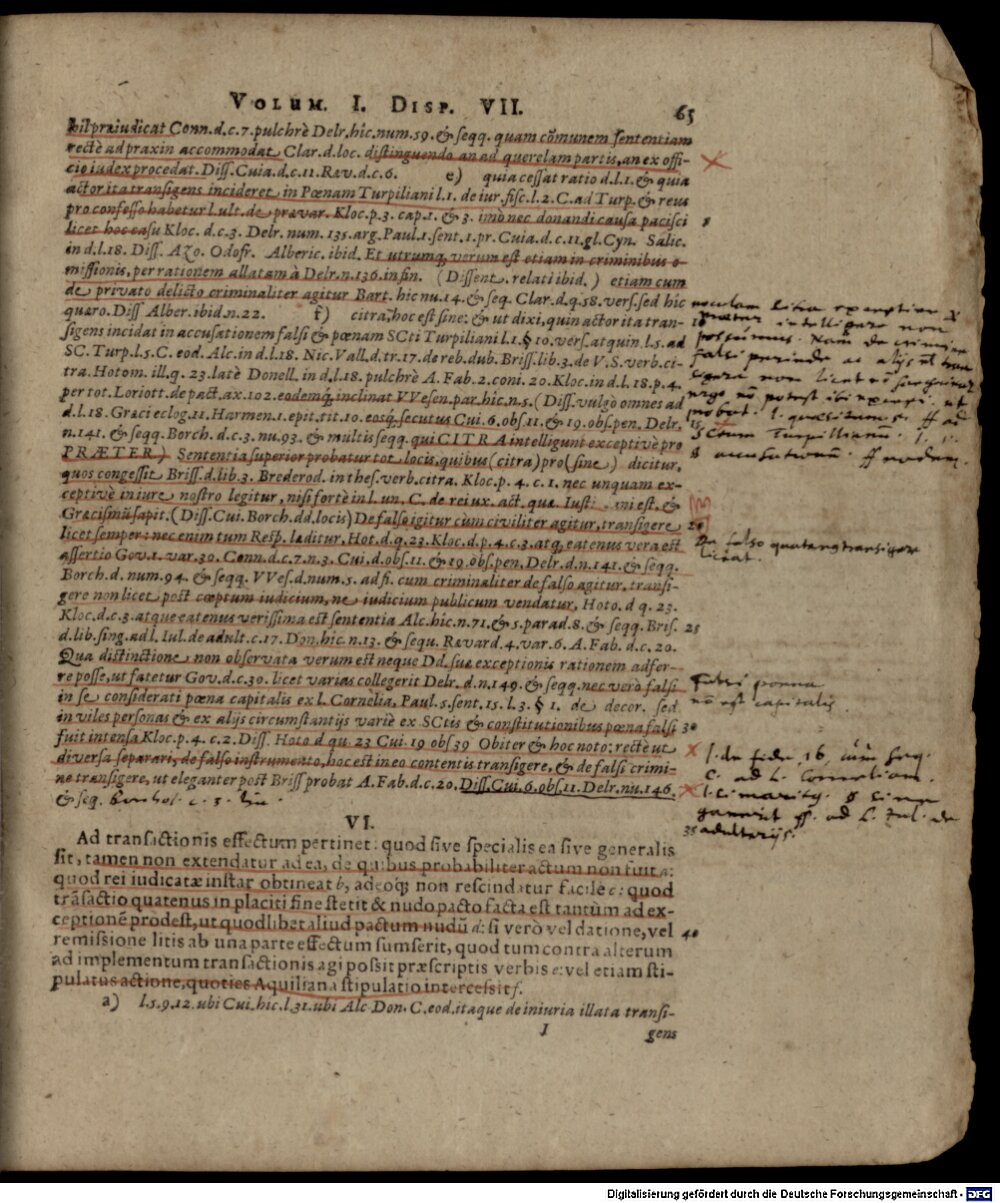 VOLUM. I. DISP. VII. 65
hil præiudicat Conn.d.c.7.pulchrè Delr.hic.num.59.& seqq. quam cõmunem sententiam
rectè ad praxin accommodat Clar.d.loc. distinguendo an ad querelam partis, an ex offi-
cio iudex procedat. Diss. Cuia.d.c.11.Rav.d.c.6. e) quia cessat ratio d.l.1.& quia
actor ita transigens incideret in Pœnam Turpiliani l.1. de iur.fisc.l.2.C.ad Turp.& reus
pro confesso habetur l.ult.de prævar. Kloc.p.3. cap.1. & 3. imò nec donandi causa pacisci 5
licet hoc casu Kloc.d.c.3. Delr.num. 135.arg.Paul.1.sent.1.pr.Cuia.d.c.11.gl.Cyn. Salic.
in d.l.18. Diss. Azo. Odofr. Alberic. ibid. Et utrumq, verum est etiam in criminibus o-
missionis, per rationem allatam à Delr.n.136.in fin. (Dissent. relati ibid.) etiam cum
de privato delicto criminaliter agitur Bart. hic nu.14.& seq. Clar.d.q.58.vers.sed hic
quæro. Diss Alber.ibid.n.22. f) citra, hoc est sine: & ut dixi, quin actor ita tran- 10
sigens incidat in accusationem falsi & pœnam SCti Turpiliani l.1.§ 10.vers.at quin.l.5.ad
SC. Turp.l.5.C. eod. Alc.in d.l.18. Nic.Vall.d.tr.17.de reb.dub.Briss.lib.3.de V.S.verb.ci-
tra. Hotom. ill.q. 23.latè Donell. in d.l.18. pulchrè A.Fab.2.coni.20. Kloc.in d.l.18.p.4.
per tot. Loriott.de pact.ax.102.eodemq, inclinat VVesen.par.hic,n.5.(Diss.vulgò omnes ad
d.l.18. Graci eclog.11. Harmen.1.epit.tit.10.eosq, secutus Cui.6.obs.11.& 19.obs.pen. Delr. 15
n.141. & seqq. Borch.d.c.3. nu.93. & multis seqq. qui CITRA intelligunt exceptivè pro
PRÆTER) Sententia superior probatur tot locis, quibus (citra) pro (sine) dicitur,
quos congessit Briss.d.lib.3. Brederod. in thes.verb.citra. Kloc.p. 4. c. 1. nec unquam ex-
ceptivè in iure nostro legitur, nisi fortè in l.un. C. de rei ux. act. quæ Iusti mi est, &
Græcismũ sapit. (Diss.Cui.Borch.dd.locis) De falso igitur cum civiliter agitur, transigere 20
licet semper: nec enim tum Resp. læditur, Hot.d.q.23.Kloc.d.p.4.c.3.atq, eatenus vera est
assertio Gov.1.var.30. Conn.d.c.7.n.3. Cui.d.obs.11.& 19.obs.pen. Delr.d.n.141.& seqq.
Borch.d.num.94. & seqq. VVes.d.num.5.ad fi. cum criminaliter de falso agitur, transi-
gere non licet post cœptum iudicium, ne iudicium publicum vendatur, Hoto. d q. 23.
Kloc.d.c.3.atque eatenus verissima est sententia Alc.hic.n.71.& 5.parad.8.& seqq. Bris. 25
d.lib.sing.ad l. Iul.de adult.c.17. Don.hic n.13.& sequ. Rævard.4.var.6.A.Fab.d.c.20.
Qua distinctione non observata verum est neque Dd.suæ exceptionis rationem adfer-
re posse, ut fatetur Gov.d.c.30. licet varias collegerit Delr.d.n.149.& seqq. nec verò falsi
in se considerati pœna capitalis ex l. Cornelia, Paul.5.sent.15.l.3.§ 1. de decor. sed
in viles personas & ex alijs circumstantijs variè ex SCtis & constitutionibus pœna falsi 30
fuit intensa Kloc.p.4.c.2.Diss. Hoto d qu.23 Cui.19 obs 39 Obiter & hoc noto: rectè ut
diversa separari, de falso instrumento, hoc est in eo contentis transigere, & de falsi crimi-
ne transigere, ut eleganter post Briss probat A.Fab.d.c.20. Diss.Cui.6.obs.11.Delr.nu.146.
& seq.
VI.
Ad transactionis effectum pertinet: quod sive specialis ea sive generalis 35
sit, tamen non extendatur ad ea, de quibus probabiliter actum non fuit a:
quod rei iudicatæ instar obtineat b, adeoq; non rescindatur facile c: quod
trãsactio quatenus in placiti fine stetit & nudo pacto facta est tantùm ad ex-
ceptionẽ prodest, ut quodlibet aliud pactum nudũ d: si verò vel datione, vel 40
remissione litis ab una parte effectum sumserit, quod tum contra alterum
ad implementum transactionis agi possit præscriptis verbis e: vel etiam sti-
pulatus actione, quoties Aquiliana stipulatio intercessit f.
a) l.5.9.12.ubi Cui.hic.l.31.ubi Alc Don. C.eod.itaque de iniuria illata transi-
I gens
De falso quatenus transigere
liceat.
Falsi pœna
nõ est capitalis